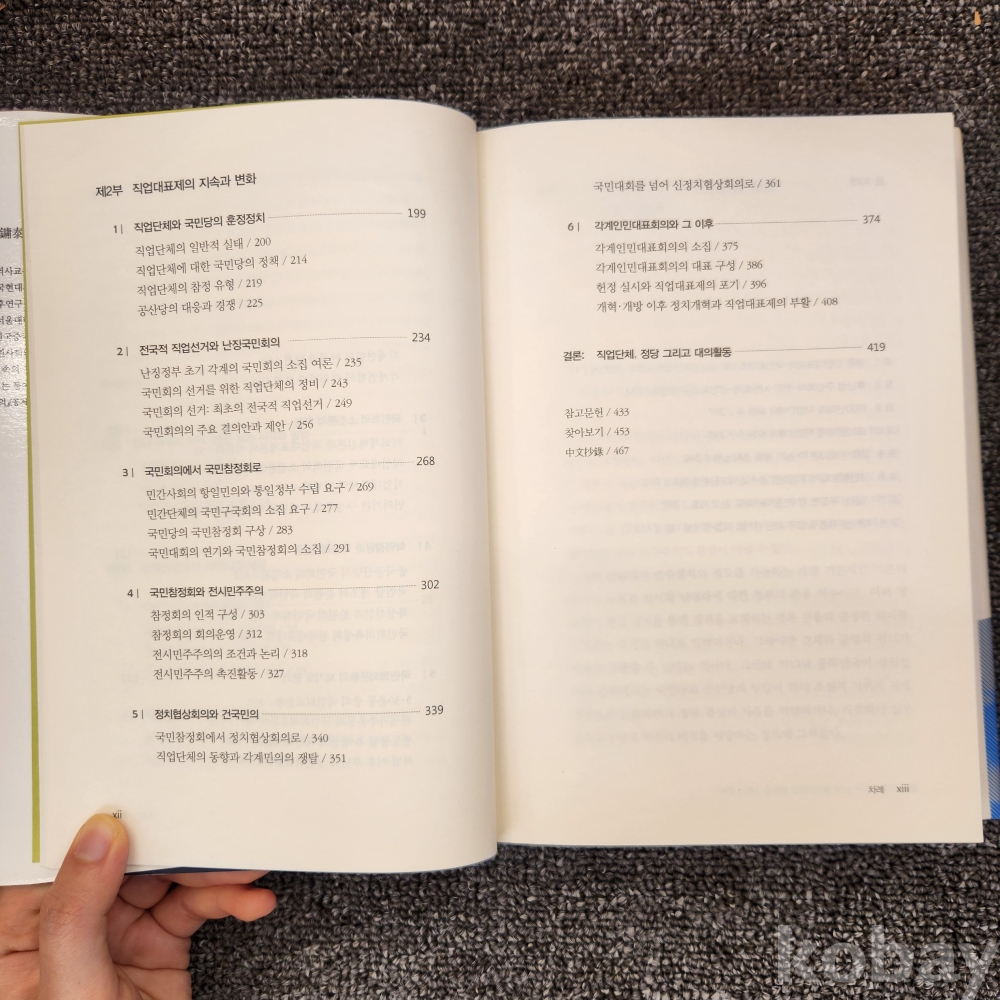 제2부 직업대표제의 지속과 변화
1 | 직업단체와 국민당의 훈정정치 199
직업단체의 일반적 실태 / 200
직업단체에 대한 국민당의 정책 / 214
직업단체의 참정 유형 / 219
공산당의 대응과 경쟁 / 225
2 | 전국적 직업선거와 난징국민회의 234
난징정부 초기 각계의 국민회의 소집 여론 / 235
국민회의 선거를 위한 직업단체의 정비 / 243
국민회의 선거: 최초의 전국적 직업선거 / 249
국민회의의 주요 결의안과 제안 / 256
3 | 국민회의에서 국민참정회로 268
민간사회의 항일민의와 통일정부 수립 요구 / 269
민간단체의 국민구국회의 소집 요구 / 277
국민당의 국민참정회 구상 / 283
국민대회의 연기와 국민참정회의 소집 / 291
4 | 국민참정회와 전시민주주의 302
참정회의 인적 구성 / 303
참정회의 회의운영 / 312
전시민주주의의 조건과 논리 / 318
전시민주주의 촉진활동 / 327
5 | 정치협상회의와 건국민의 339
국민참정회에서 정치협상회의로 / 340
직업단체의 동향과 각계민의의 쟁탈 / 351
xii
국민대회를 넘어 신정치협상회의로 / 361
6 | 각계인민대표회의와 그 이후 374
각계인민대표회의의 소집 / 375
각계인민대표회의의 대표 구성 / 386
헌정 실시와 직업대표제의 포기 / 396
개혁·개방 이후 정치개혁과 직업대표제의 부활 / 408
결론: 직업단체, 정당 그리고 대의활동 419
참고문헌 / 433
찾아보기 / 453
中文抄錄 / 467
차례 xiii
kobay